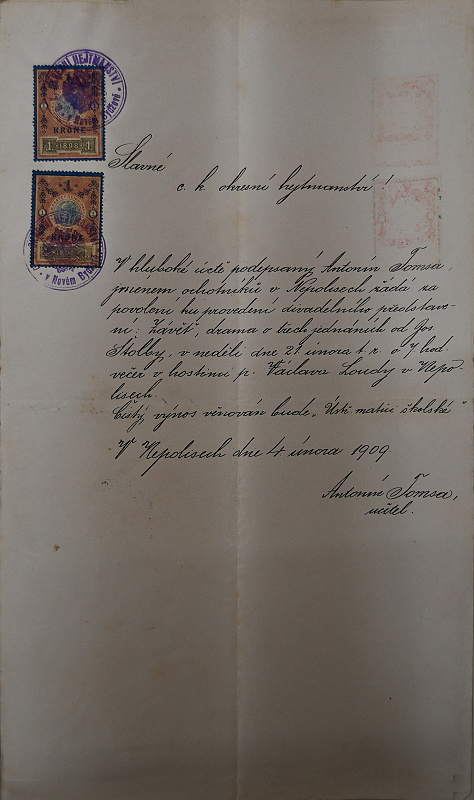 OKRESNÍ HEJTMANSTVÍ
v Novém Bydžově
KRONE
1 1898 1
1
KRONE
1898
v Novém Bydžově
Slavné
c. k. okresní hejtmanství!
V hluboké úctě podepsaný Antonín Tomsa,
jmenem ochotníků v Nepolisech žádá za
povolení ku provedení divadelního představe-
ní: Závěť, drama o třech jednáních od Jos.
Štolby, v neděli dne 21 února t. r. o 7 hod
večer v hostinci p. Václava Loudy v Nepo-
lisech.
Čistý výnos věnován bude „Ústř. matici školské“
V Nepolisech dne 4. února 1909.
Antonín Tomsa,
učitel.